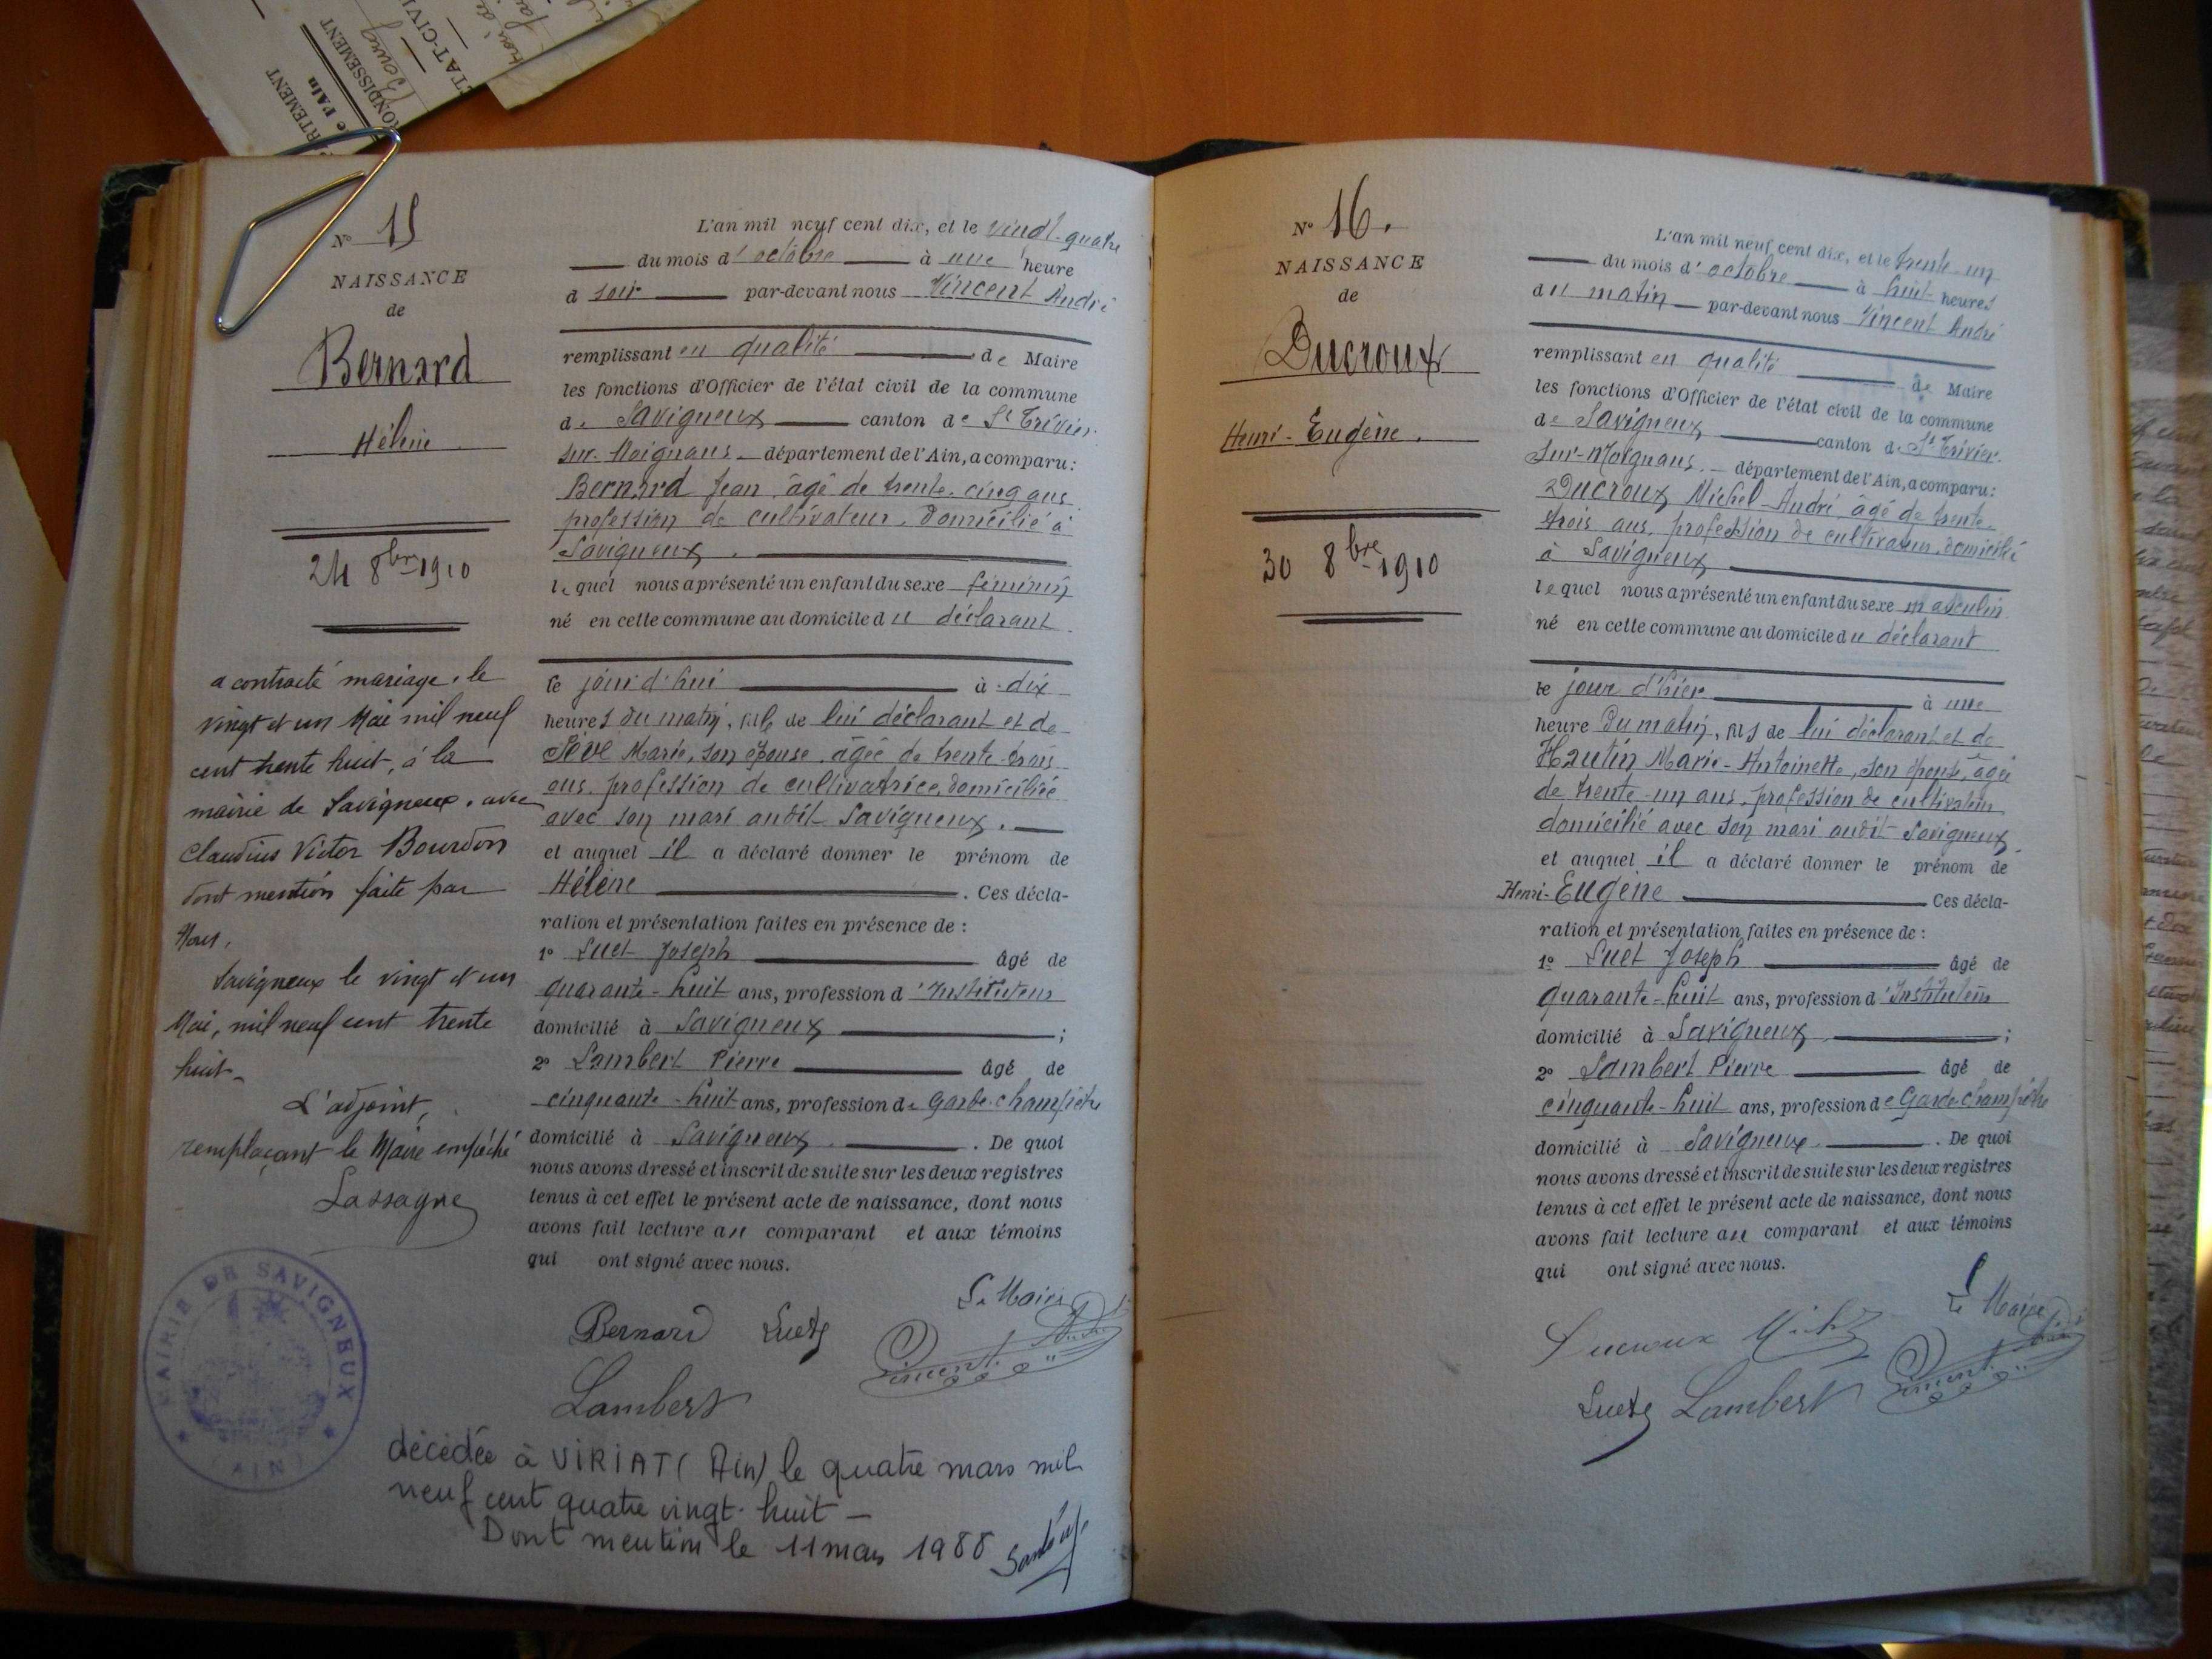 RTEMENT
e l'Ain
RONDISSEMENT
Bourg
TAT-CIVI
N° 15
NAISSANCE
de
Bernard
Hélène
24 8bre 1910
a contracté mariage, le
vingt et un Mai mil neuf
cent trente huit, à la
mairie de Savigneux, avec
Claudius Victor Bourdon
dont mention faite par
Nous,
Savigneux le vingt et un
Mai, mil neuf cent trente
huit-
L'adjoint,
remplaçant le Maire empêché
Lassagne
MAIRIE DE SAVIGNEUX
(AIN)
L'an mil neuf cent dix, et le vindt-quatre
du mois d'octobre à une heure
d soir par-devant nous Vincent André
remplissant en qualité de Maire
les fonctions d'Officier de l'état civil de la commune
de Savigneux canton de St Trivier
sur-Moignans département de l'Ain, a comparu :
Bernard Jean, âgé de trente-cinq ans
profession de cultivateur, domicilié à
Savigneux.
lequel nous a présenté un enfant du sexe féminin
né en cette commune au domicile du déclarant
le jour d'hui à dix
heures du matin, fille de lui déclarant et de
Sève Marie, son épouse, âgée de trente-trois
ans, profession de cultivatrice, domiciliée
avec son mari audit Savigneux.
et auquel il a déclaré donner le prénom de
Hélène. Ces décla-
ration et présentation faites en présence de :
1° Luet Joseph âgé de
quarante-huit ans, profession d'Instituteur
domicilié à Savigneux ;
2° Lambert Pierre âgé de
cinquante-huit ans, profession de Garde-champêtre
domicilié à Savigneux. De quoi
nous avons dressé et inscrit de suite sur les deux registres
tenus à cet effet le présent acte de naissance, dont nous
avons fait lecture au comparant et aux témoins
qui ont signé avec nous.
Le Maire
Bernard Luet Vincent André
Lambert
décédée à VIRIAT (Ain) le quatre mars mil
neuf cent quatre vingt-huit —
Dont mention le 11 mars 1988
N° 16.
NAISSANCE
de
Ducroux
Henri-Eugène.
30 8bre 1910
L'an mil neuf cent dix, et le trente-un
du mois d'octobre à huit heures
du matin par-devant nous Vincent André
remplissant en qualité de Maire
les fonctions d'Officier de l'état civil de la commune
de Savigneux canton de St Trivier
sur-Moignans. département de l'Ain, a comparu :
Ducroux Michel-André âgé de trente-
trois ans, profession de cultivateur, domicilié
à Savigneux
lequel nous a présenté un enfant du sexe masculin
né en cette commune au domicile du déclarant
le jour d'hier à une
heure du matin, fils de lui déclarant et de
Hautin Marie-Antoinette, son épouse, âgée
de trente-un ans, profession de cultivateur
domicilié avec son mari audit Savigneux
et auquel il a déclaré donner le prénom de
Henri-Eugène Ces décla-
ration et présentation faites en présence de :
1° Luet Joseph âgé de
quarante-huit ans, profession d'Instituteur
domicilié à Savigneux ;
2° Lambert Pierre âgé de
cinquante-huit ans, profession de Garde champêtre
domicilié à Savigneux. De quoi
nous avons dressé et inscrit de suite sur les deux registres
tenus à cet effet le présent acte de naissance, dont nous
avons fait lecture au comparant et aux témoins
qui ont signé avec nous.
Le Maire
Ducroux
Luet Lambert Vincent